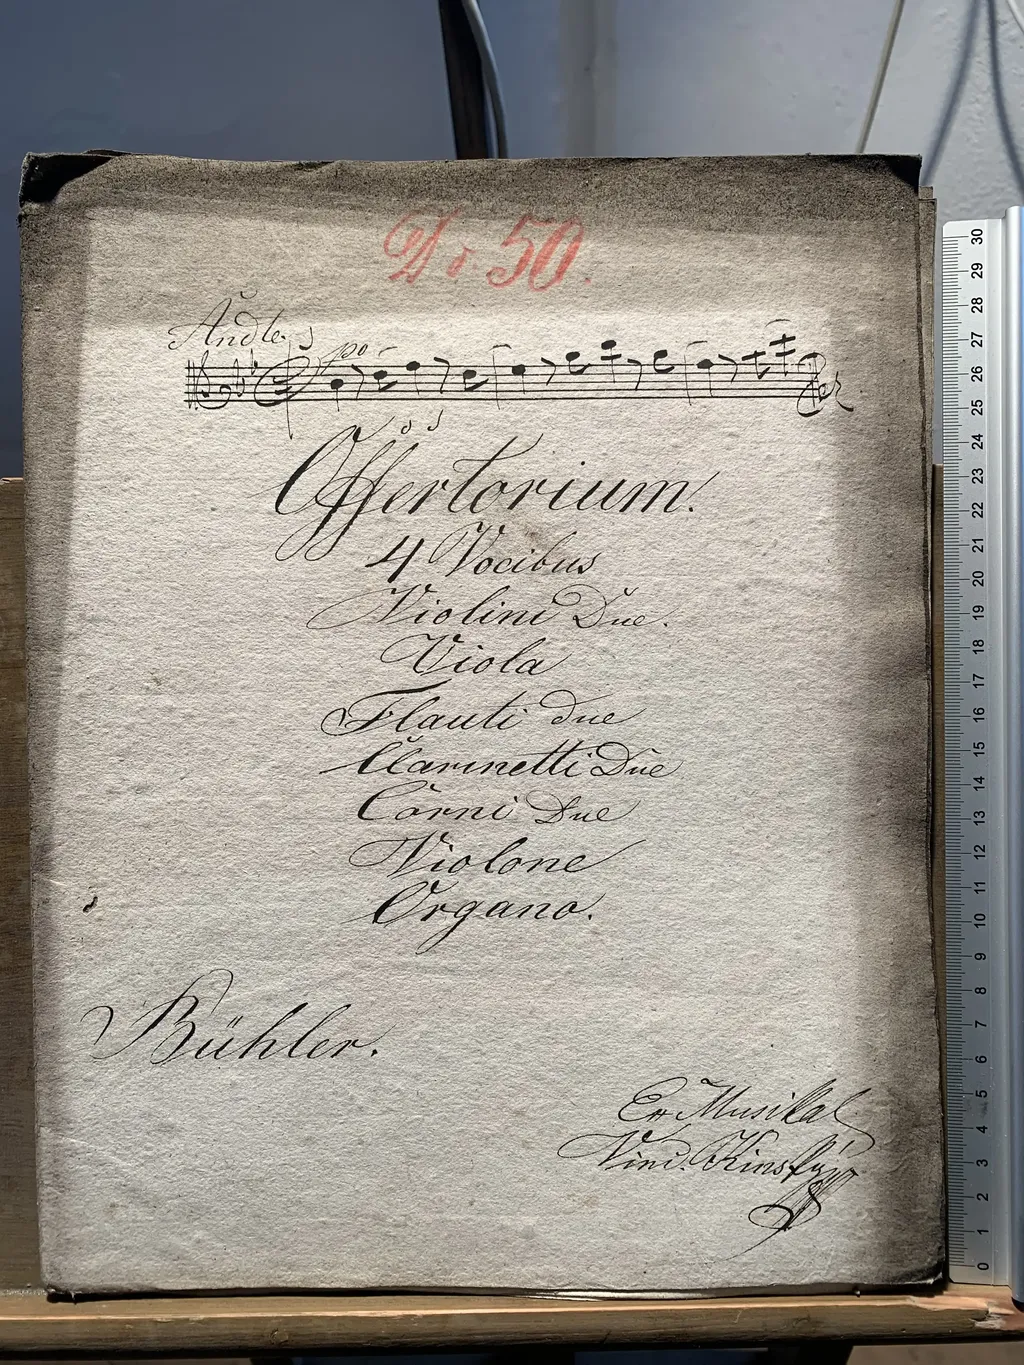 No. 50.
Andte.
po
Offertorium.
4 Vocibus
Violini Due.
Viola
Flauti due
Clarinetti Due
Corni Due
Violone
Organo.
Bühler.
Ex Musikal
Vinc. Kinský
30
29
28
27
26
25
24
23
22
21
20
19
18
17
16
15
14
13
12
11
10
9
8
7
6
5
4
3
2
1
0